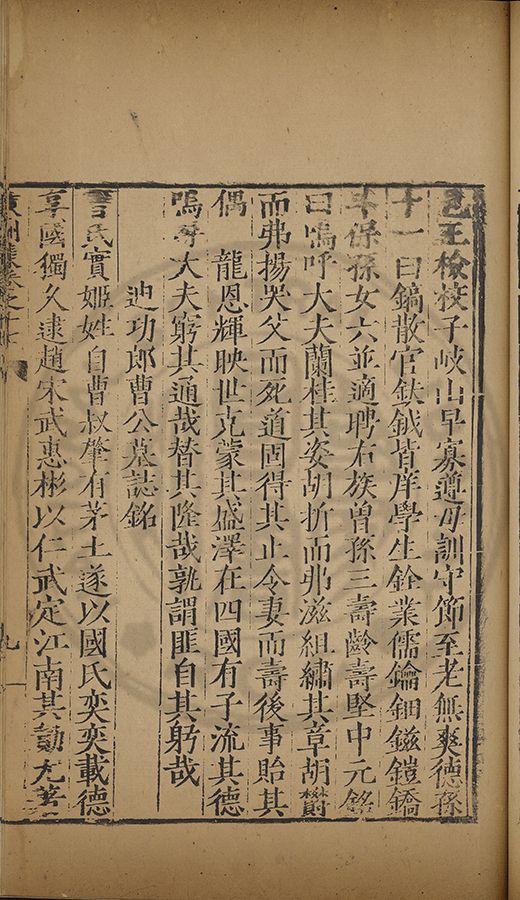 邑王檢校子岐山早寡遵母訓守節至老無爽德孫
十一曰鎬散官鈇鉞皆庠學生銓業儒鑰鈿鎡鎧鐈
保孫女六並適聘右族曾孫三壽齡壽堅中元銘
曰嗚呼大夫蘭桂其姿胡折而弗滋組繡其章胡欝
而弗揚哭父而死道固得其止令妻而壽後事貽其
偶　龍恩輝映世克蒙其盛澤在四國有子流其德
嗚呼大夫窮其通哉替其隆哉孰謂匪自其躬哉
迪功郎曹公墓誌銘
曹氏實姬姓自曹叔肇有茅土遂以國氏奕奕載德
享國獨久逮趙宋武惠彬以仁武定江南其勳尤著
卷之十
九